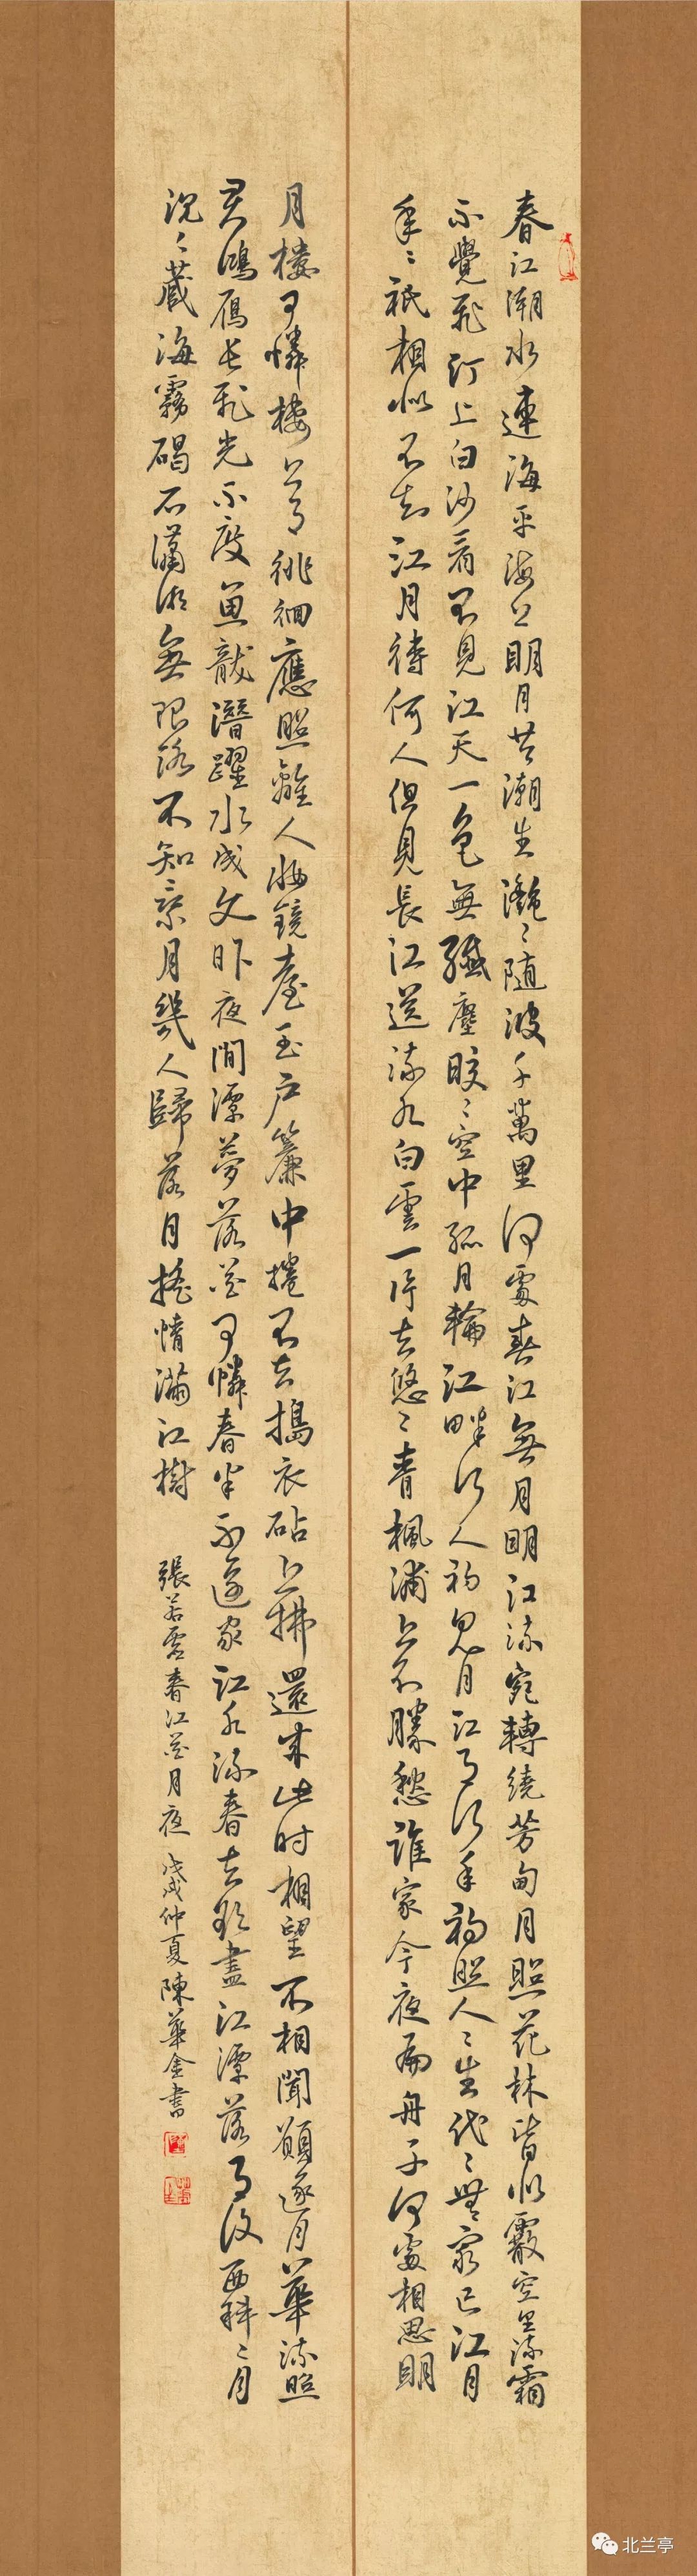 春江潮水連海平海上明月共潮生灔〻随波千萬里何處春江無月明江流宛轉繞芳甸月照花林皆似霰空里流霜
不覺飛汀上白沙看不見江天一色無纖塵皎〻空中孤月輪江畔何人初見月江月何年初照人〻生代〻無窮已江月
年〻祇相似不知江月待何人但見長江送流水白雲一片去悠〻青楓浦上不勝愁誰家今夜扁舟子何處相思明
月樓可憐樓上月徘徊應照離人妝鏡臺玉户簾中捲不去搗衣砧上拂還来此时相望不相聞願逐月華流照
君鴻雁長飛光不度魚龍潛躍水成文昨夜閒潭夢落花可憐春半不還家江水流春去欲盡江潭落月復西斜〻月
沉〻藏海霧碣石瀟湘無限路不知乘月幾人歸落月搖情滿江樹 張若虛春江花月夜 戊戌仲夏陳華金書
北兰亭